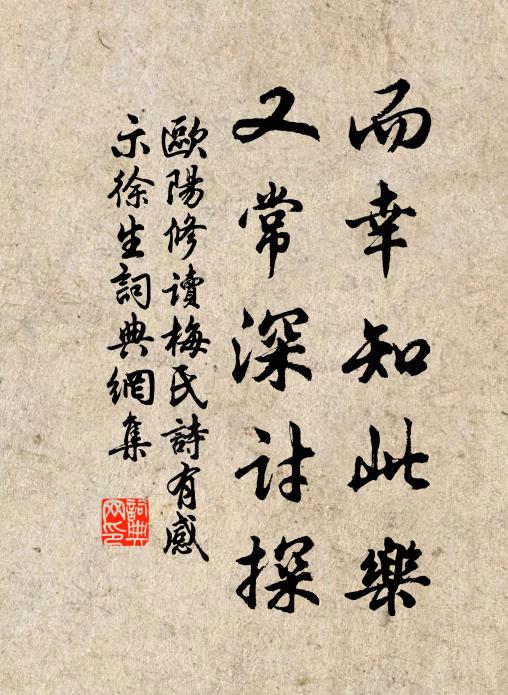 而幸知此樂
又常深討探
歐陽修讀梅氏詩有感
示徐生詞典網集
詞典
网印